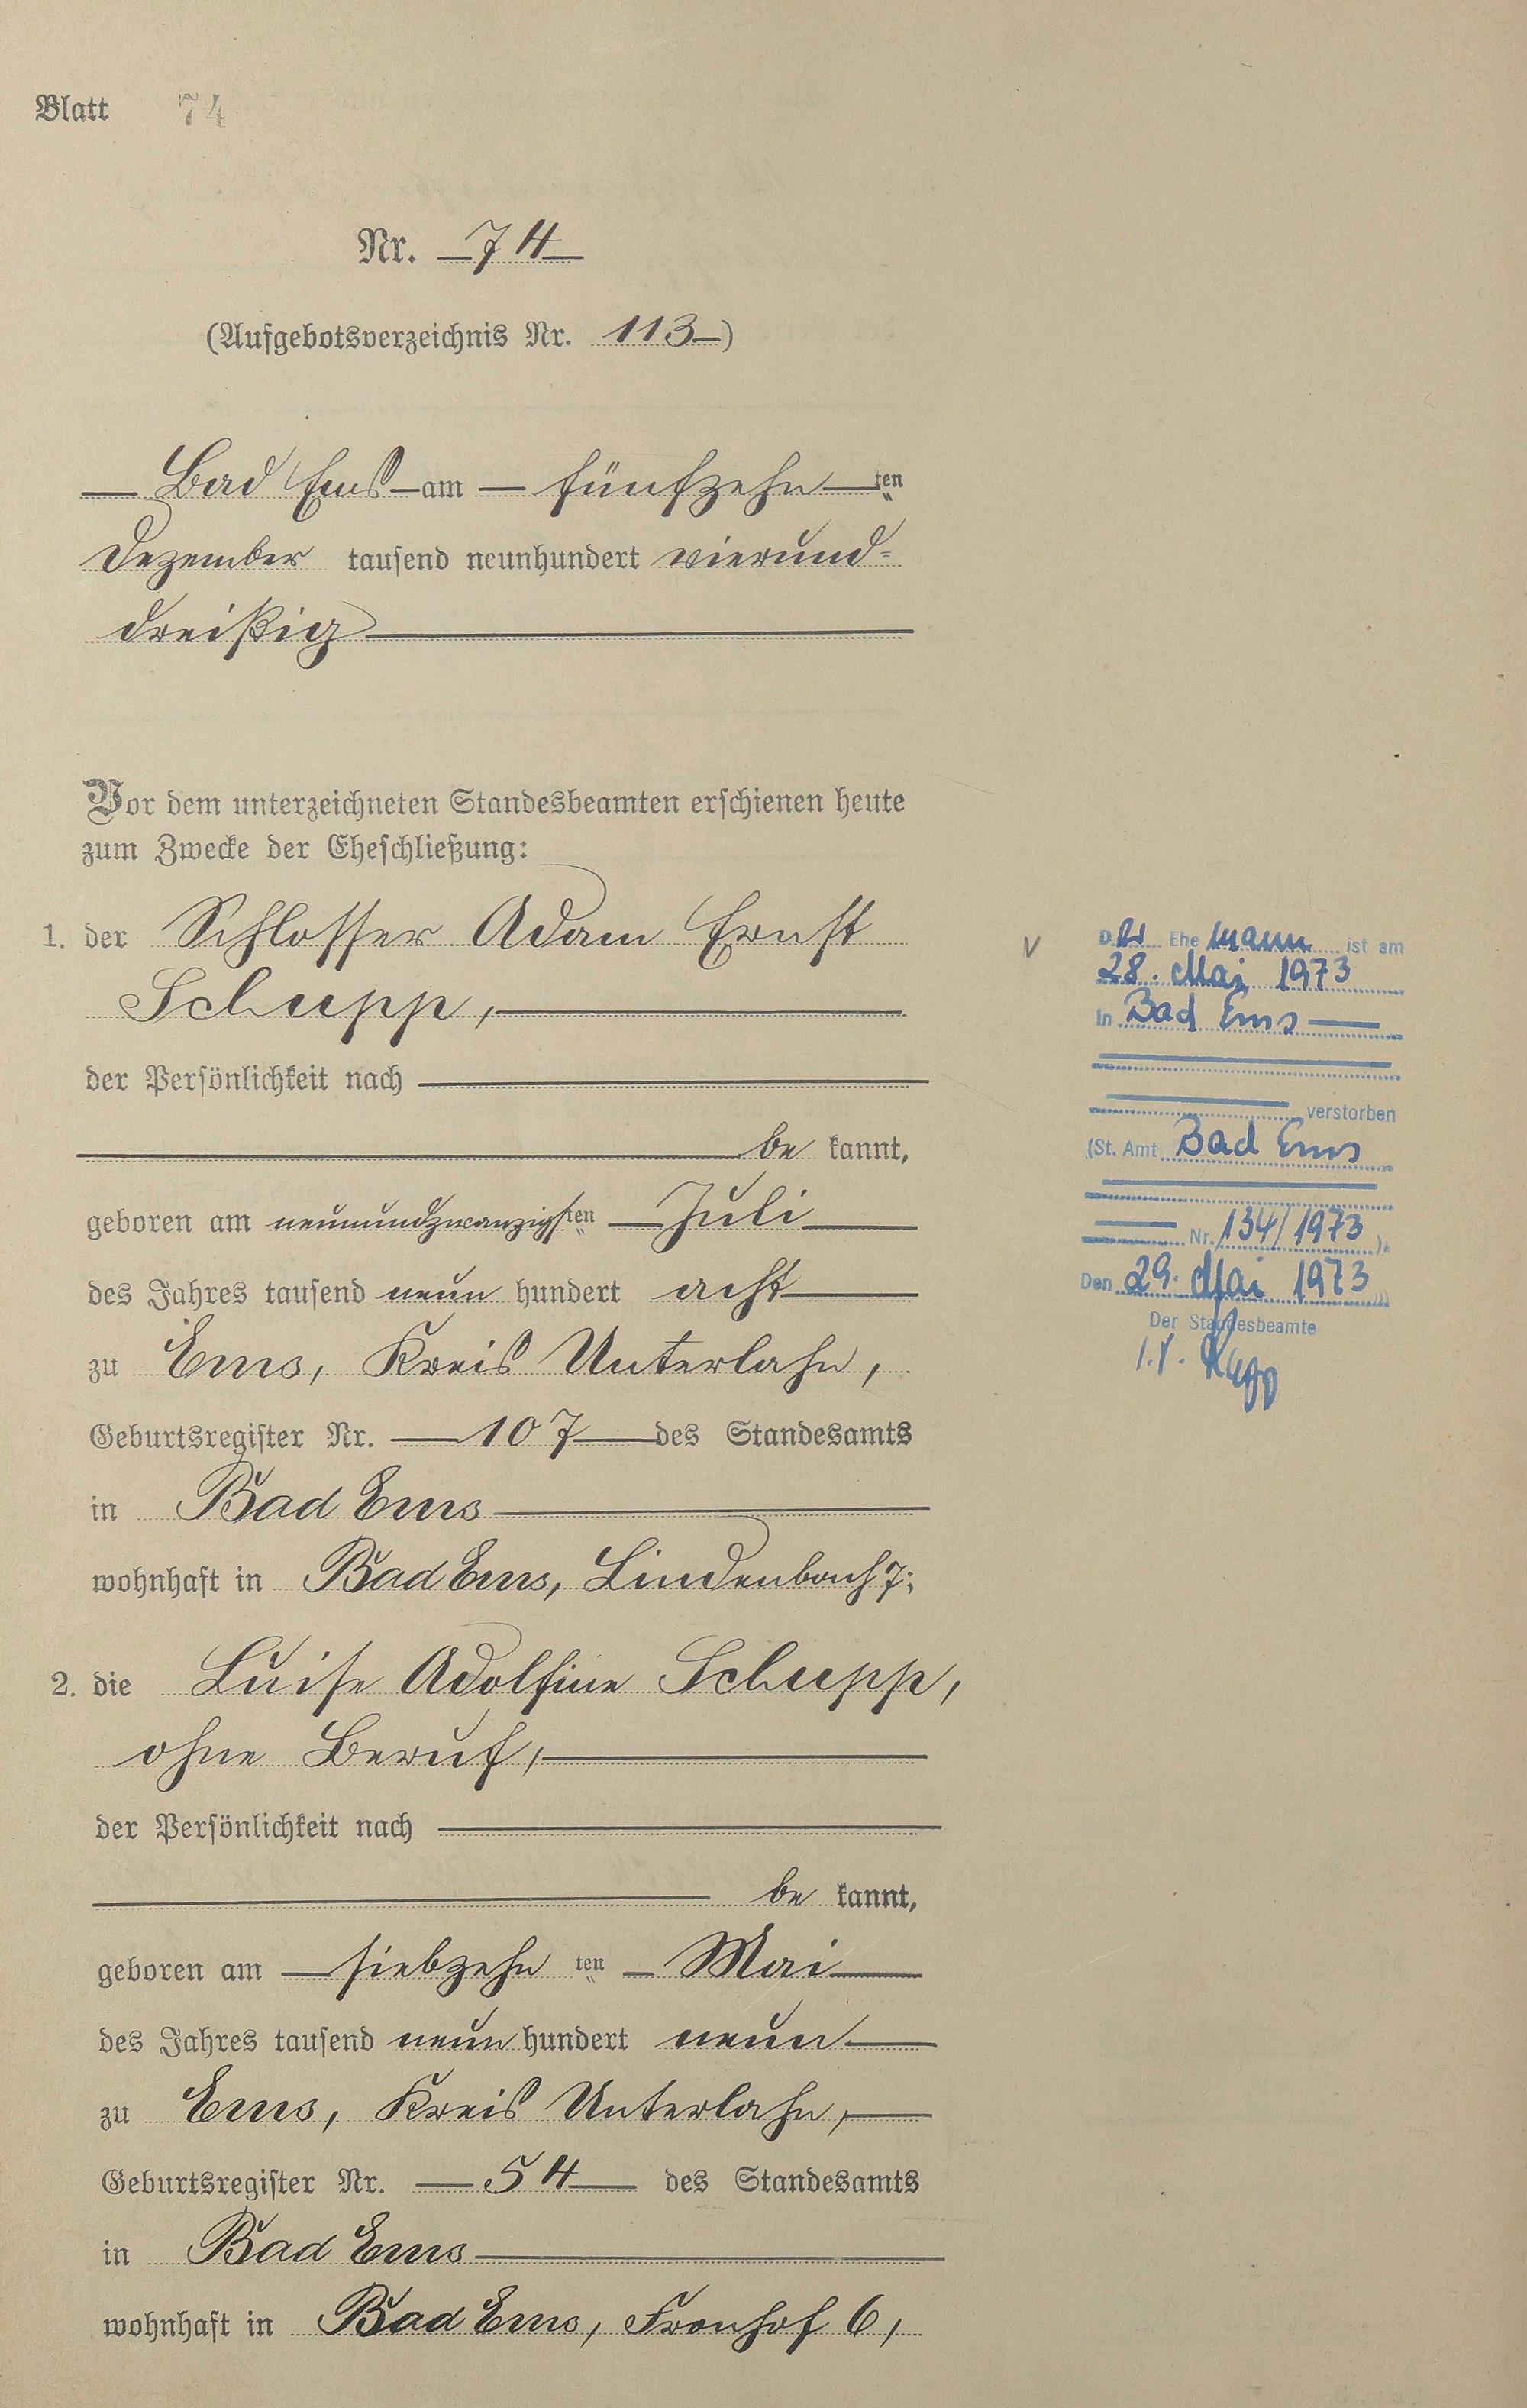 Blatt 74
Nr. 74
(Aufgebotsverzeichnis Nr. 113)
Bad Ems am fünfzehn ten
Dezember tausend neunhundert vierund=
dreißig
Vor dem unterzeichneten Standesbeamten erschienen heute
zum Zwecke der Eheschließung:
1. der Schlosser Adam Ernst
Schupp,
der Persönlichkeit nach
be kannt,
geboren am neunundzwanzigsten Juli
des Jahres tausend neun hundert acht
zu Ems, Kreis Unterlahn,
Geburtsregister Nr. 107 des Standesamts
in Bad Ems
wohnhaft in Bad Ems, Lindenbach 7;
2. die Luise Adolfine Schupp,
ohne Beruf,
der Persönlichkeit nach
be kannt,
geboren am siebzehn ten Mai
des Jahres tausend neun hundert neun
zu Ems, Kreis Unterlahn,
Geburtsregister Nr. 54 des Standesamts
in Bad Ems
wohnhaft in Bad Ems, Fronhof 6,
Der Ehe mann ist am
28. Mai 1973
in Bad Ems
verstorben
(St. Amt Bad Ems
Nr. 134/1973).
Den 29. Mai 1973
Der Standesbeamte
I.V.